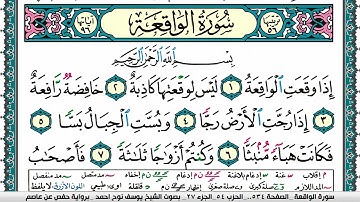 سُورَةُ الْوَاقِعَةِ
بِسْمِ اللَّهِ الرَّحْمَٰنِ الرَّحِيمِ
إِذَا وَقَعَتِ الْوَاقِعَةُ ١ لَيْسَ لِوَقْعَتِهَا كَاذِبَةٌ ٢ خَافِضَةٌ رَّافِعَةٌ
٣ إِذَا رُجَّتِ الْأَرْضُ رَجًّا ٤ وَبُسَّتِ الْجِبَالُ بَسًّا ٥
فَكَانَتْ هَبَاءً مُّنْبَثًّا ٦ وَكُنْتُمْ أَزْوَاجًا ثَلَاثَةً ٧ فَأَصْحَابُ
سورة الواقعة الصفحة ٥٣٤ الحزب ٥٤ الجزء ٢٧ بصوت الشيخ يوسف نوح احمد برواية حفص عن عاصم